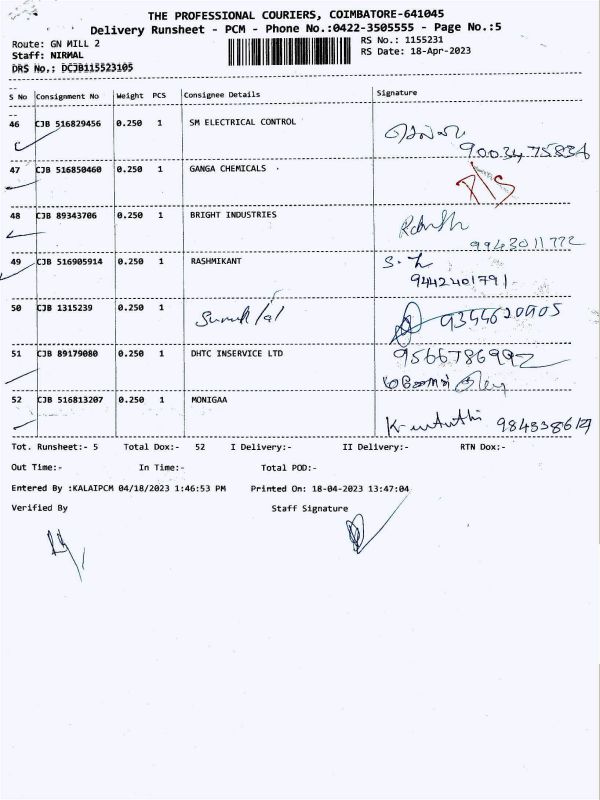 THE PROFESSIONAL COURIERS, COIMBATORE-641045
Delivery Runsheet - PCM - Phone No.:0422-3505555 - Page No.:5
Route: GN MILL 2
RS No.: 1155231
Staff: NIRMAL
RS Date: 18-Apr-2023
DRS No.: DCJB115523105
S No Consignment No Weight PCS Consignee Details Signature
46 CJB 516829456 0.250 1 SM ELECTRICAL CONTROL
47 CJB 516850460 0.250 1 GANGA CHEMICALS
48 CJB 89343706 0.250 1 BRIGHT INDUSTRIES
9943011772
49 CJB 516905914 0.250 1 RASHMIKANT
9442401791
50 CJB 1315239 0.250 1
9344620905
51 CJB 89179080 0.250 1 DHTC INSERVICE LTD
9566786992
52 CJB 516813207 0.250 1 MONIGAA
Tot. Runsheet:- 5 Total Dox:- 52 I Delivery:- II Delivery:- RTN Dox:-
Out Time:- In Time:- Total POD:-
Entered By :KALAIPCM 04/18/2023 1:46:53 PM Printed On: 18-04-2023 13:47:04
Verified By Staff Signature